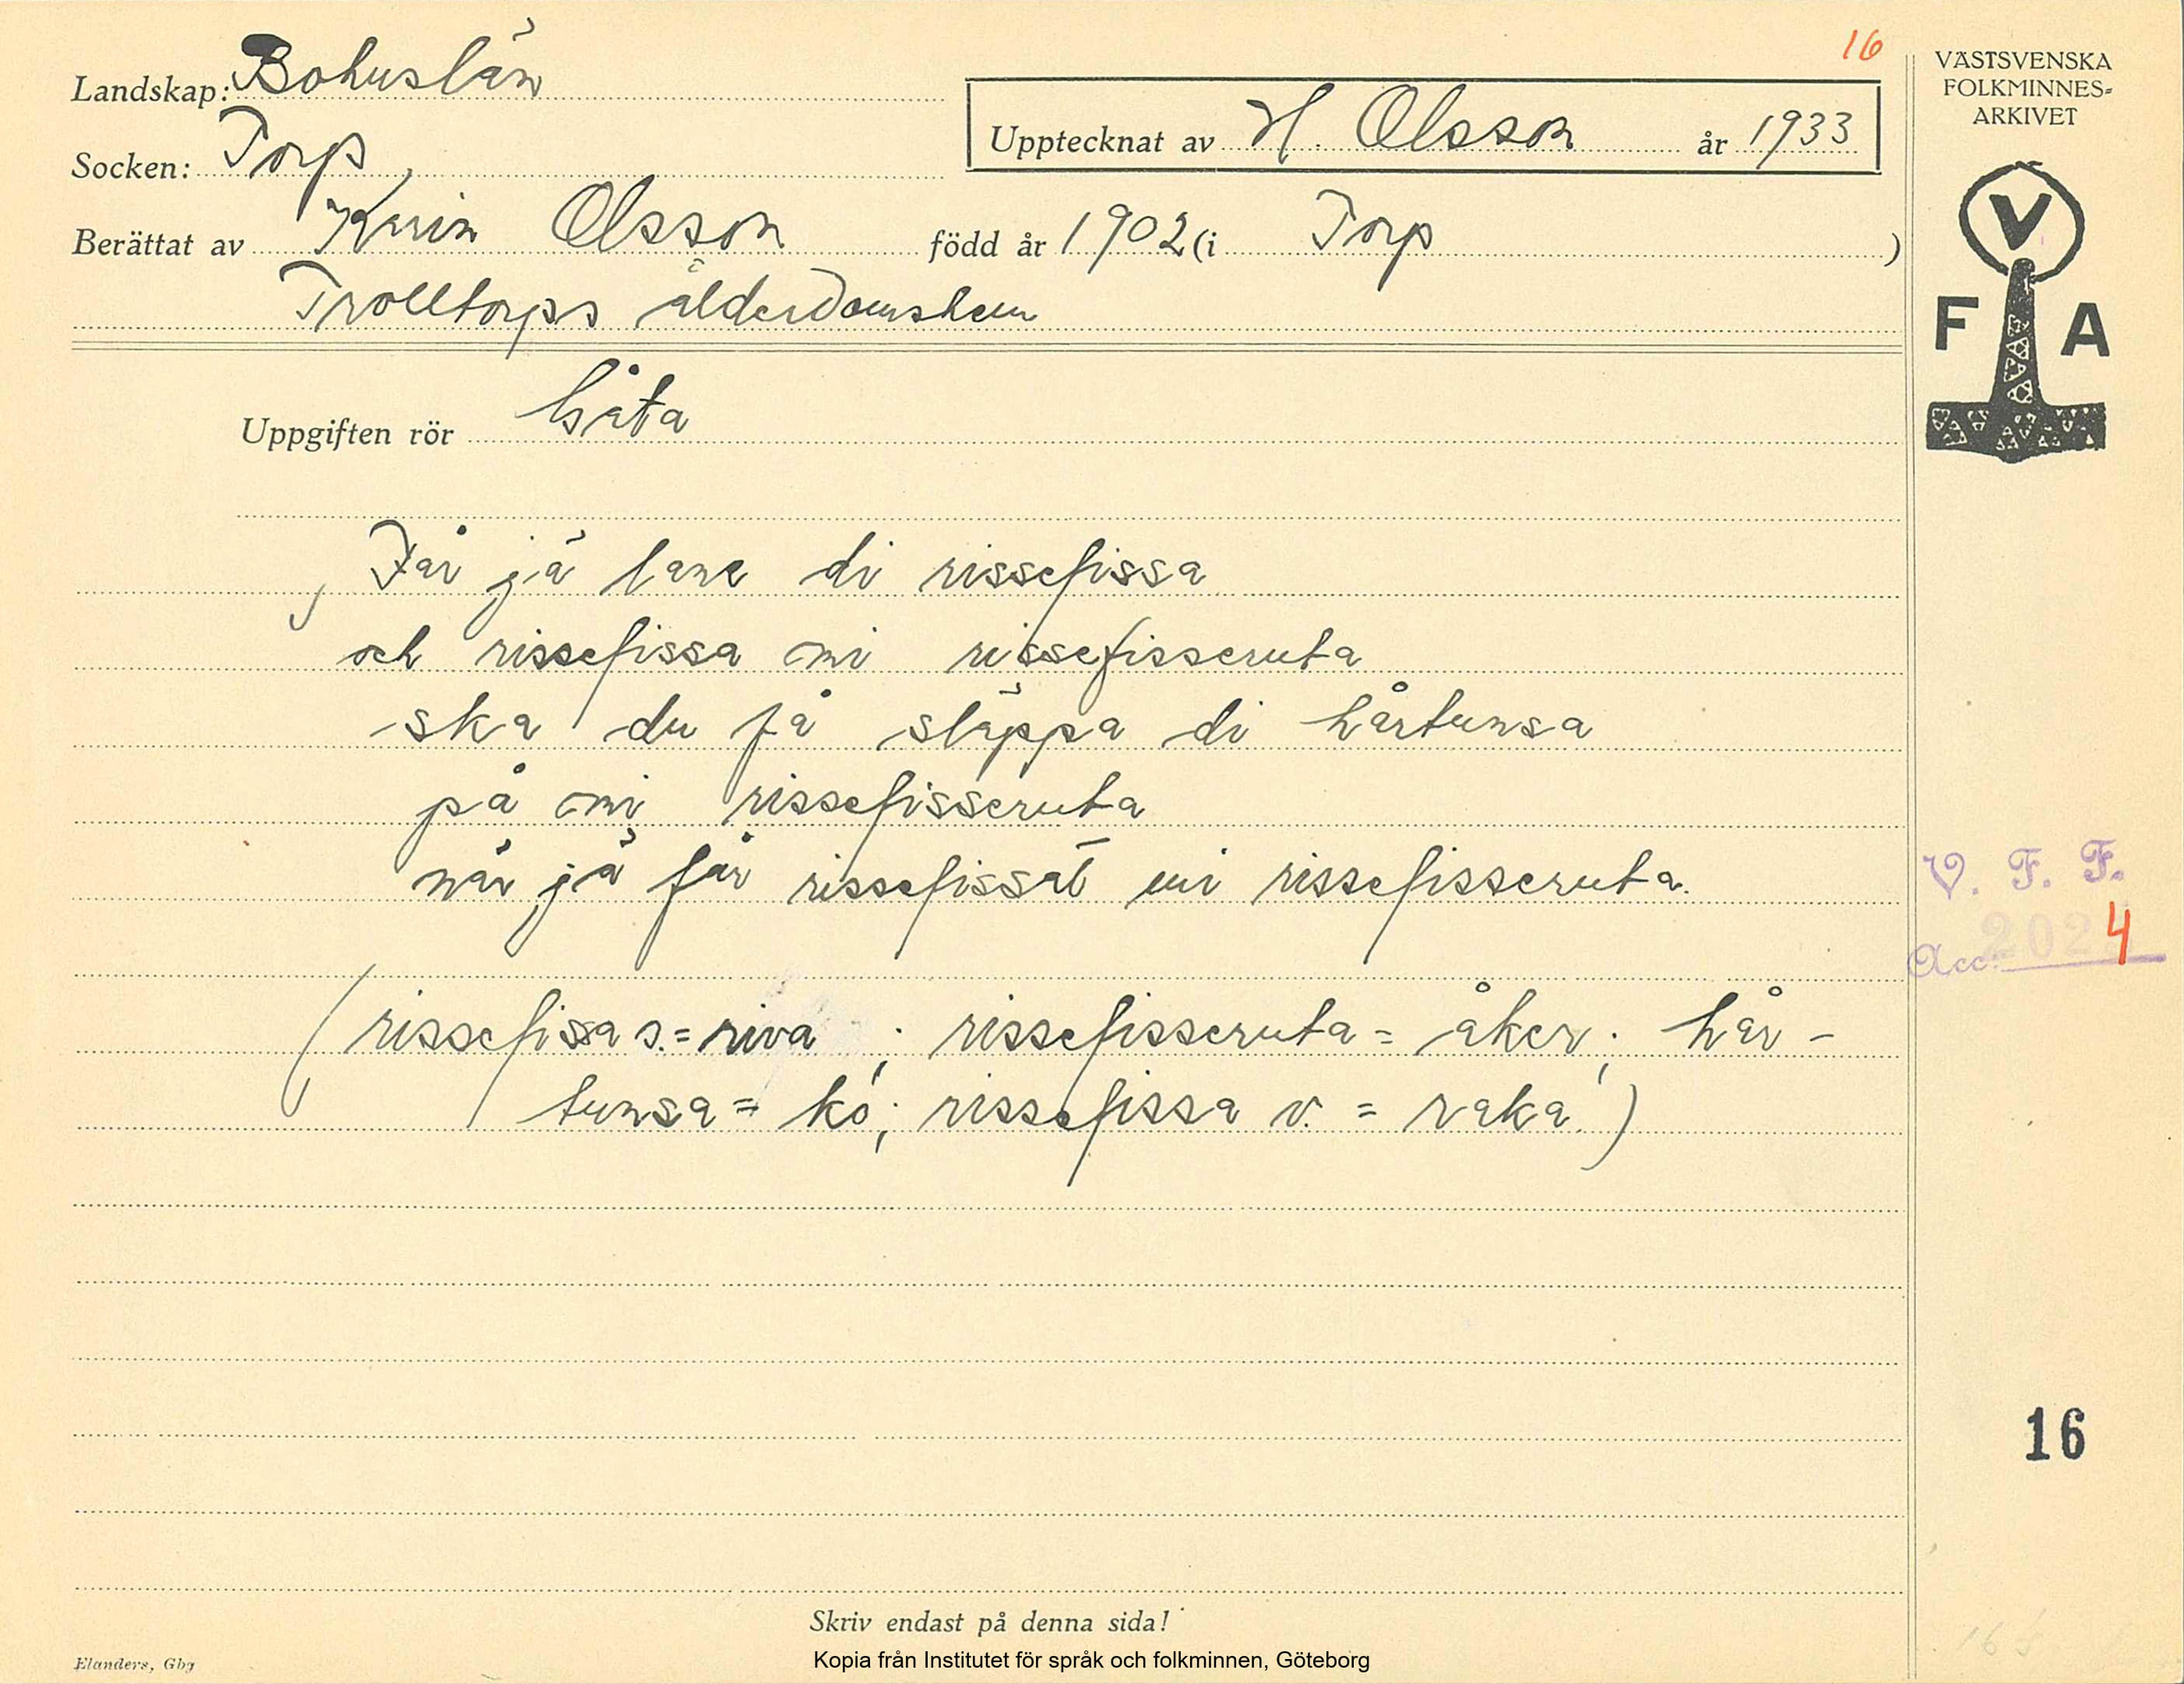 16
Landskap: Bohuslän
Upptecknat av H. Olsson år 1933
Socken: Torp
Berättat av Karin Olsson född år 1902 (i Torp)
Trolltorps ålderdomshem
Uppgiften rör Gåta
Får jä lane di rissefissa
och rissefissa mi rissefisseruta
ska du få släppa di hårtunsa
på mi rissefisseruta
när jä får rissefissat mi rissefisseruta.
(rissefissa s. = riva; rissefisseruta = åker; hår-
tunsa = ko; rissefissa v. = raka.)
Skriv endast på denna sida!
Kopia från Institutet för språk och folkminnen, Göteborg
Elanders, Gbg
VÄSTSVENSKA
FOLKMINNES-
ARKIVET
V
F A
V. F. F.
Acc. 2024
16